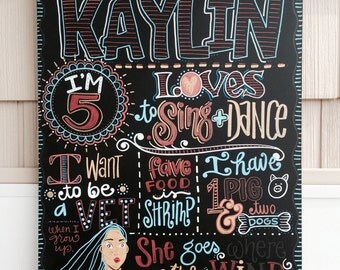 KAYLIN
I'M
5
LOVES
to Sing + DANCE
I WANT
to be
a VET
WHEN I
GROW
UP.
FAVE
FOOD
is
SHRIMP
I HAVE
1 PIG
& two
DOGS
She goes where
the WIND